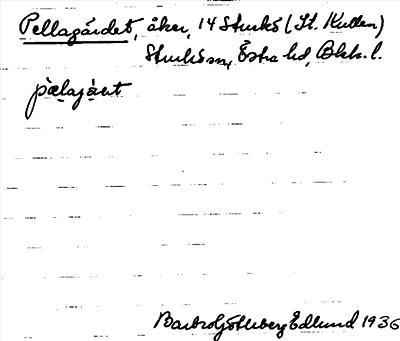 Pellagärdet, åker, 14 Sturkö (St. Kullen)
Sturkö sn, Östra hd, Blek. l.
pælajäʀt
Barbro Götleberg Edlund 1936